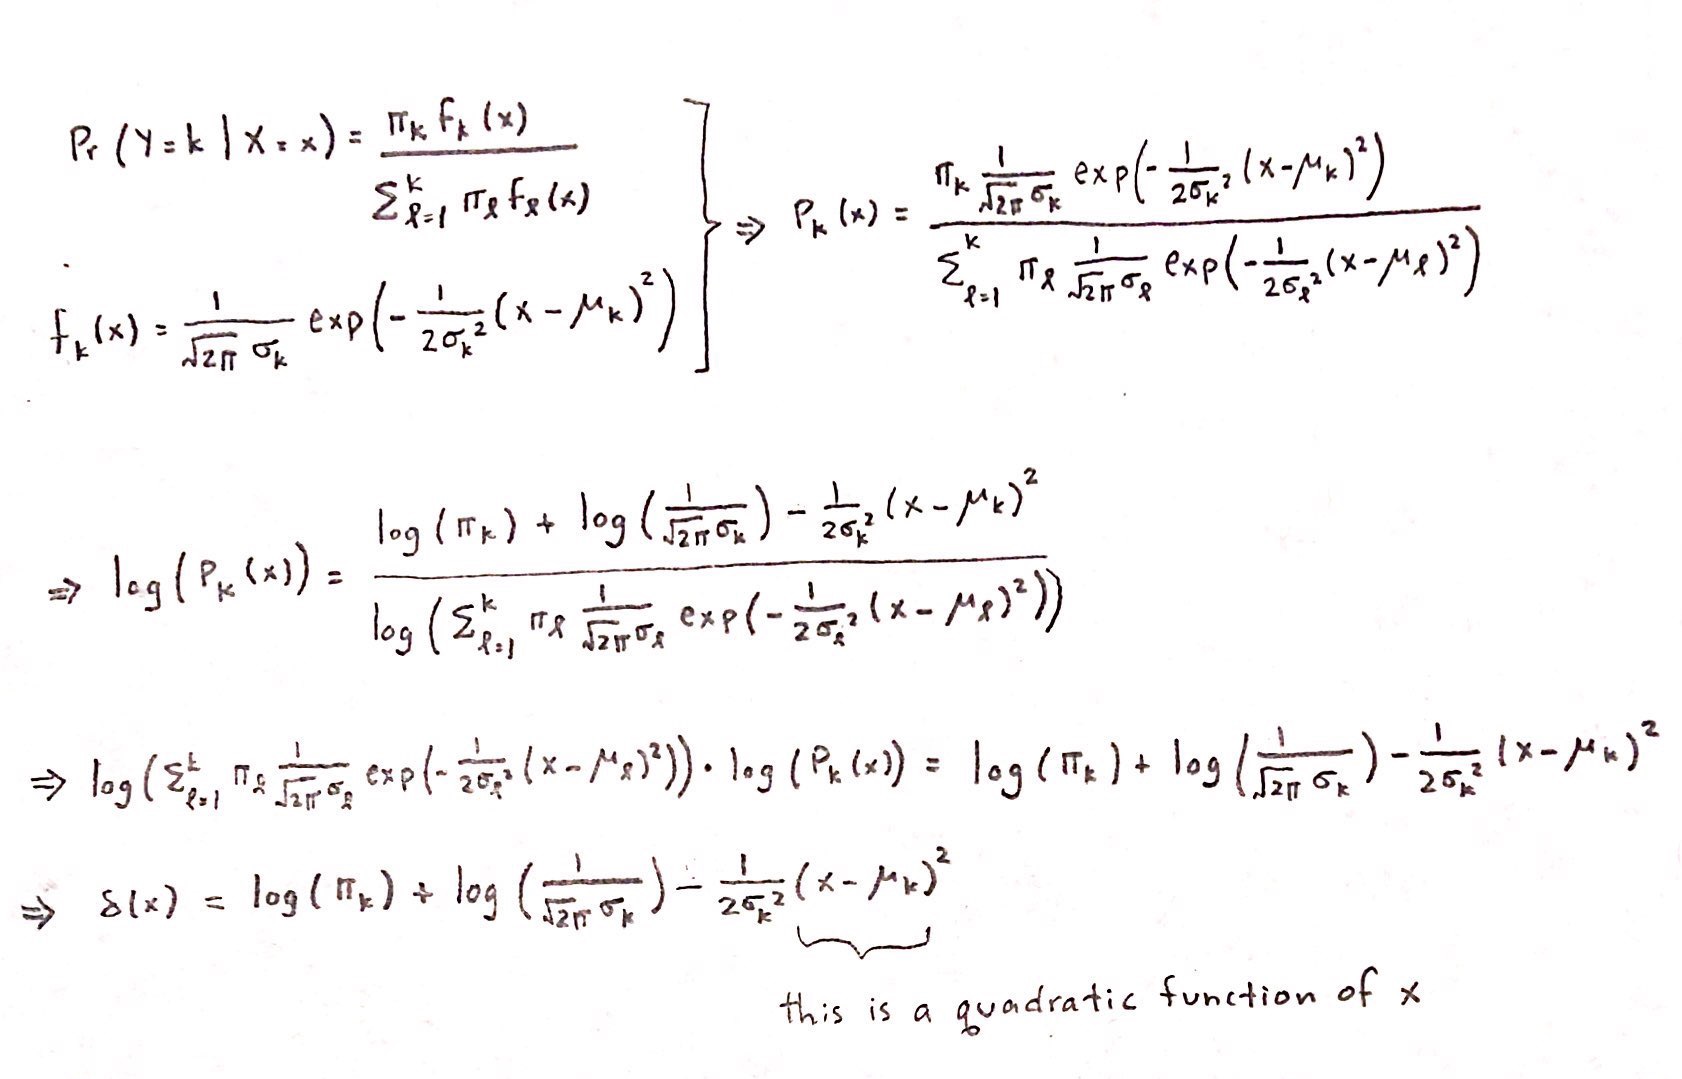 Pr (Y=k | X=x) = π_k f_k (x) / Σ_{ℓ=1}^{k} π_ℓ f_ℓ (x)
f_k (x) = 1/(√2π σ_k) exp(- 1/(2σ_k²) (x - μ_k)²)
⇒ P_k (x) = π_k 1/(√2π σ_k) exp(- 1/(2σ_k²) (x-μ_k)²) / Σ_{ℓ=1}^{k} π_ℓ 1/(√2π σ_ℓ) exp(- 1/(2σ_ℓ²) (x-μ_ℓ)²)
⇒ log(P_k (x)) = log (π_k) + log (1/(√2π σ_k)) - 1/(2σ_k²) (x - μ_k)² / log (Σ_{ℓ=1}^{k} π_ℓ 1/(√2π σ_ℓ) exp(- 1/(2σ_ℓ²) (x - μ_ℓ)²))
⇒ log(Σ_{ℓ=1}^{k} π_ℓ 1/(√2π σ_ℓ) exp(- 1/(2σ_ℓ²) (x - μ_ℓ)²)) · log (P_k (x)) = log (π_k) + log (1/(√2π σ_k)) - 1/(2σ_k²) (x - μ_k)²
⇒ δ(x) = log (π_k) + log (1/(√2π σ_k)) - 1/(2σ_k²) (x - μ_k)²
this is a quadratic function of x